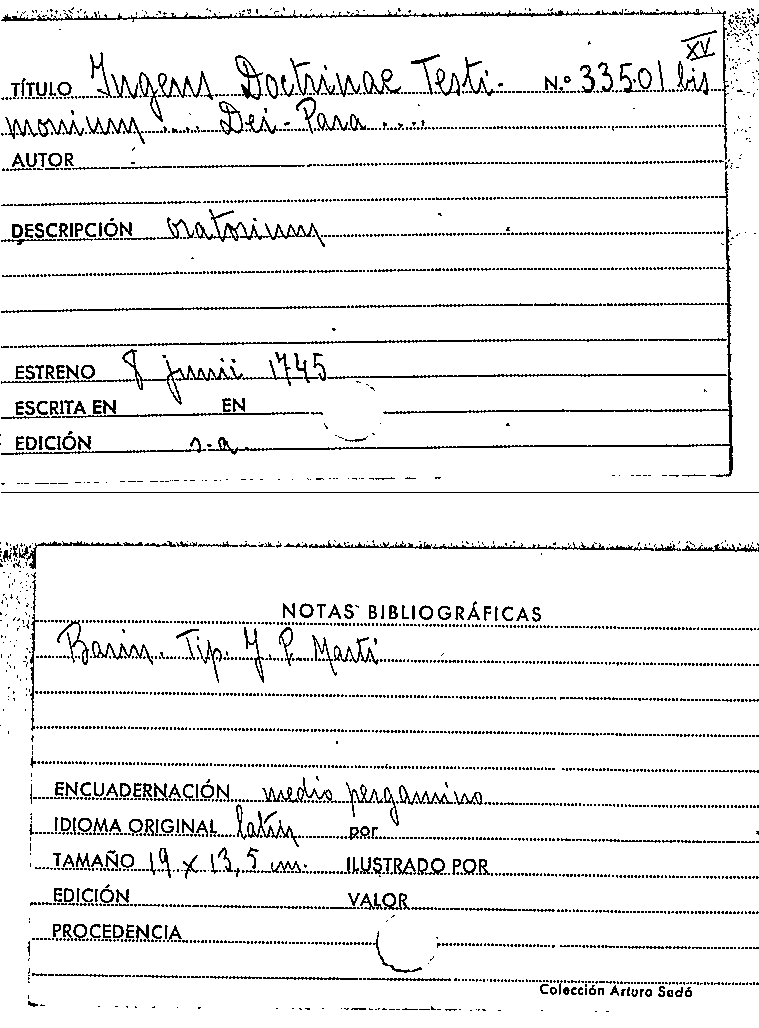 XV
TÍTULO Ingens Doctrinae Testi- N.º 33501 bis
monium .... Dei-Para ....
AUTOR
DESCRIPCIÓN oratorium
ESTRENO 8 junii 1745
ESCRITA EN EN
EDICIÓN s.a.
NOTAS BIBLIOGRÁFICAS
Barcin. Tip. J. P. Martí
ENCUADERNACIÓN medio pergamino
IDIOMA ORIGINAL latín por
TAMAÑO 19 x 13,5 cm. ILUSTRADO POR
EDICIÓN VALOR
PROCEDENCIA
Colección Arturo Sedó